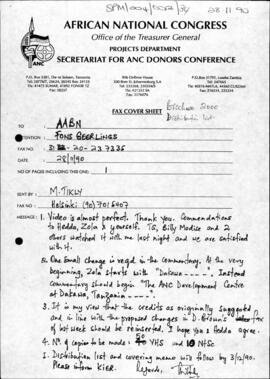 SPM/004/0012/34
28.11.90
AFRICAN NATIONAL CONGRESS
Office of the Treasurer General
PROJECTS DEPARTMENT
SECRETARIAT FOR ANC DONORS CONFERENCE
ANC
FAX COVER SHEET
Distribution list
TO AABN
ATTENTION FONS GEERLINGS
FAX NO.
DATE 28/11/90
NO OF PAGES INCLUDING THIS ONE: 1
SENT BY M. TIKLY
FAX NO Helsinki (90) 7015407
MESSAGE: 1. Video is almost perfect. Thank you. Commendations
to Hedda, Zola & yourself. TG, Billy Modise and 2
others watched it with me last night and we are satisfied
with it.
2. One Small change is reqd in the commentary. At the very
beginning, Zola starts with "Dakawa ----". Instead
commentary should begin "The ANC Development Centre
at Dakawa, Tanzania ----".
3. It is my view that the credits as originally suggested
and in line with the proposed changes in D. Brown's fax
of last week should be reinserted. I hope you & Hedda agree.
4. No. of copies to be made: 50 VHS and 10 NTSC
5. Distribution list and covering memo will follow by 3/12/90.
Please inform KIER. Regards, Tikly